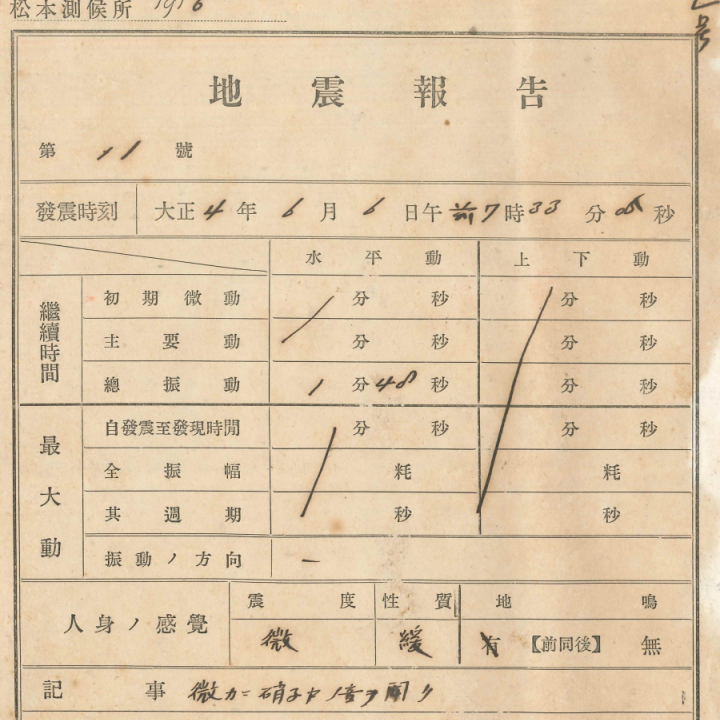 松本測候所 1916
号
地震報告
第 11 號
發震時刻 大正4年6月6日午前7時33分8秒
水平動 上下動
繼續時間
初期微動 分 秒 分 秒
主要動 分 秒 分 秒
總振動 1分48秒 分 秒
最大動
自發震至發現時間 分 秒 分 秒
全振幅 粍 粍
其週期 秒 秒
振動ノ方向 —
人身ノ感覺
震度 性質 地鳴
微 緩 有【前同後】無
記事 微カニ硝子戸ノ音ヲ聞ク